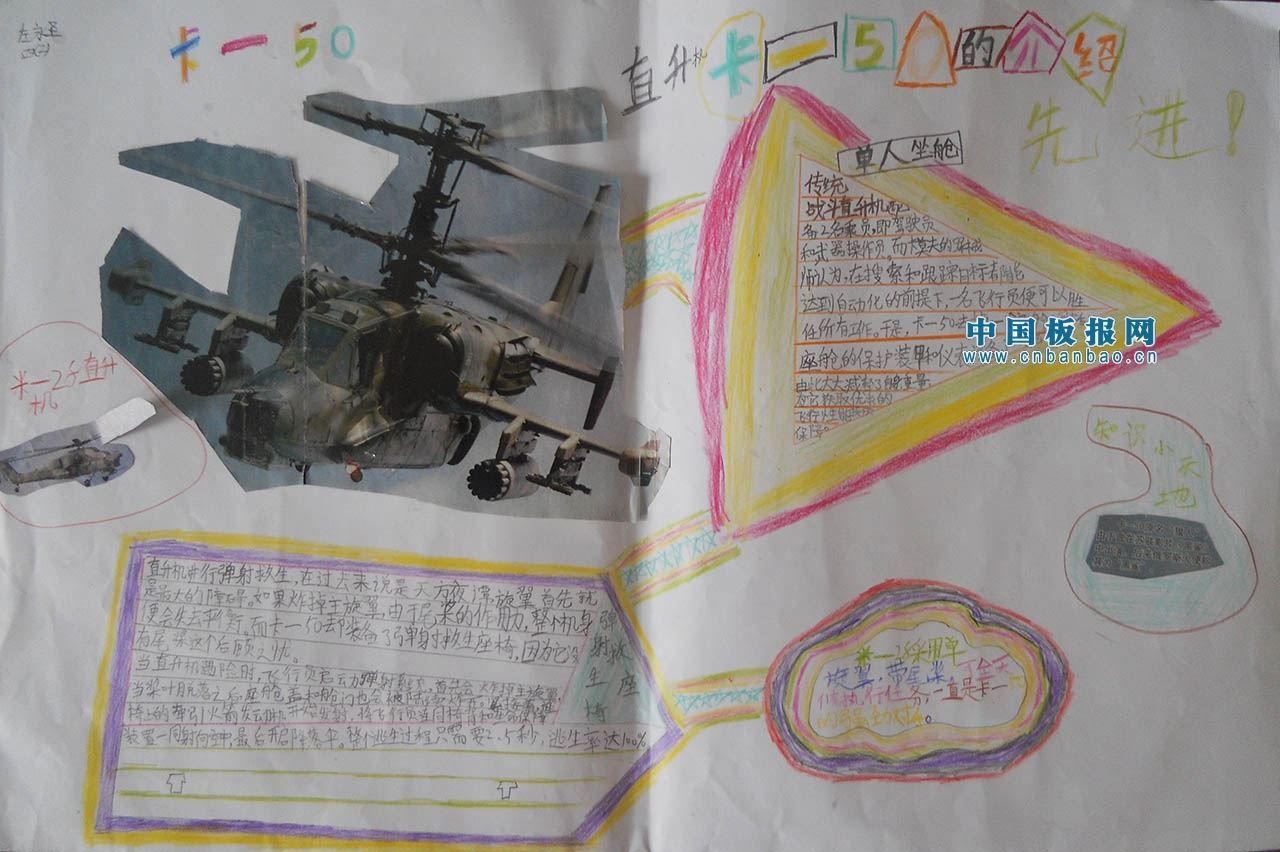 卡一50
直升机卡一50的介绍
先进！
单人坐舱
传统
战斗直升机配
备2名乘员,即驾驶员
和武器操作员.而
师认为,在搜索和跟踪目标者
达到自动化的前提下,一名飞行员便可以胜
任所有工作.于是,卡一50
座舱的保护装甲和仪
由此大大减轻了自身重量
为它获取优良的
飞行性能提供
保障。
中国板报网
www.cnbanbao.cn
米一28直升
机
知识
小天
地
直升机进行弹射救生,在过去来说是天方夜谭.旋翼首先就
是最大的障碍.如果炸掉主旋翼,由于尾桨的作用,整个机身
便会失去平衡.而卡一50却装备了弹射救生座椅,因为它没
有尾桨这个后顾之忧。
当直升机遇险时,飞行员启动弹射程序,首先会炸掉主旋翼,
当桨叶脱落之后,座舱盖和舱门也会被
椅上的牵引火箭发动机开始点火,将飞行员连同椅背和
装置一同射向空中,最后开启降落伞。整个逃生过程只需要2.5秒,逃生率达100%
弹射救生座椅
米一28采用单
旋翼,带尾桨,
候执行任务,一直是卡一
50的强劲对手。